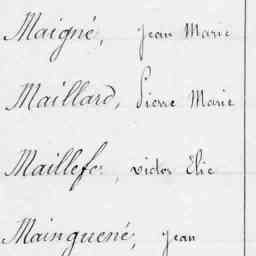 Maigné, Jean Marie
Maillard, Pierre Marie
Maillefer, victor Elie
Mainguené, Jean